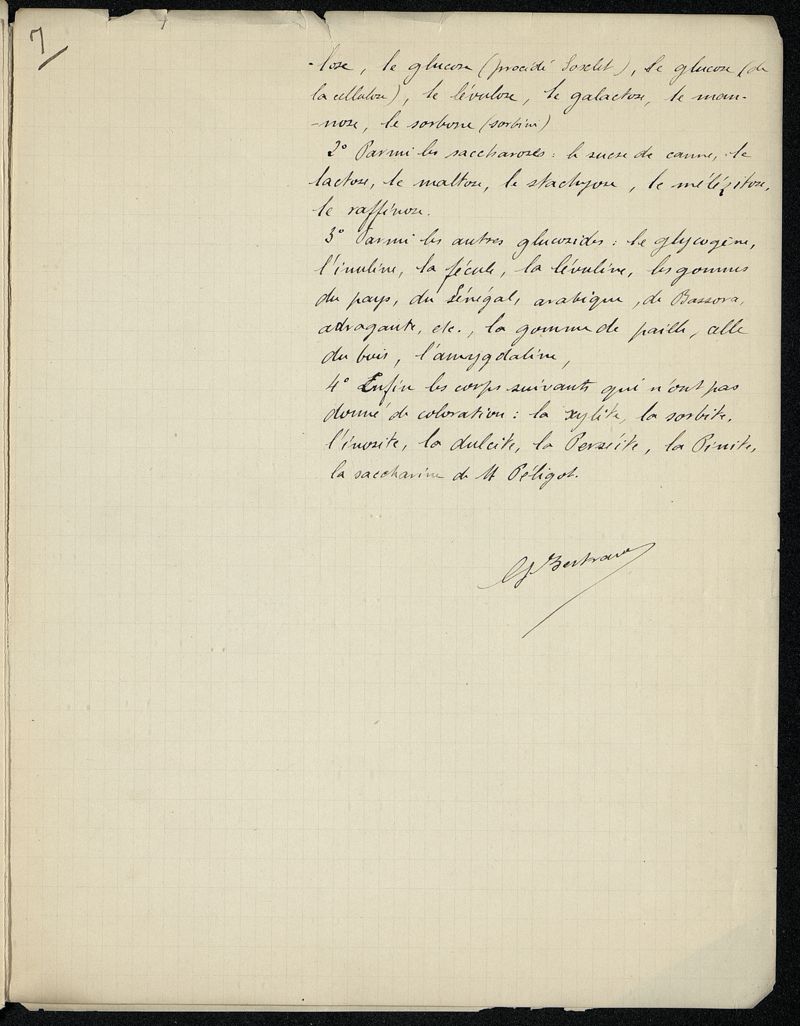 7
-lose, le glucose (procédé Soxlet), le glucose (de
la cellulose), le lévulose, le galactose, le man-
-nose, le sorbose (sorbine)
2° Parmi les saccharoses : le sucre de canne, le
lactose, le maltose, le stachyose, le mélézitose,
le raffinose.
3° Parmi les autres glucosides : le glycogène,
l'inuline, la fécule, la lévuline, les gommes
du pays, du Sénégal, arabique, de Bassora,
adragante, etc., la gomme de paille, celle
du bois, l'amygdaline,
4° Enfin les corps suivants qui n'ont pas
donné de coloration : la xylite, la sorbite,
l'inosite, la dulcite, la Perséite, la Pinite,
la saccharine de M Péligot.
G. Bertrand